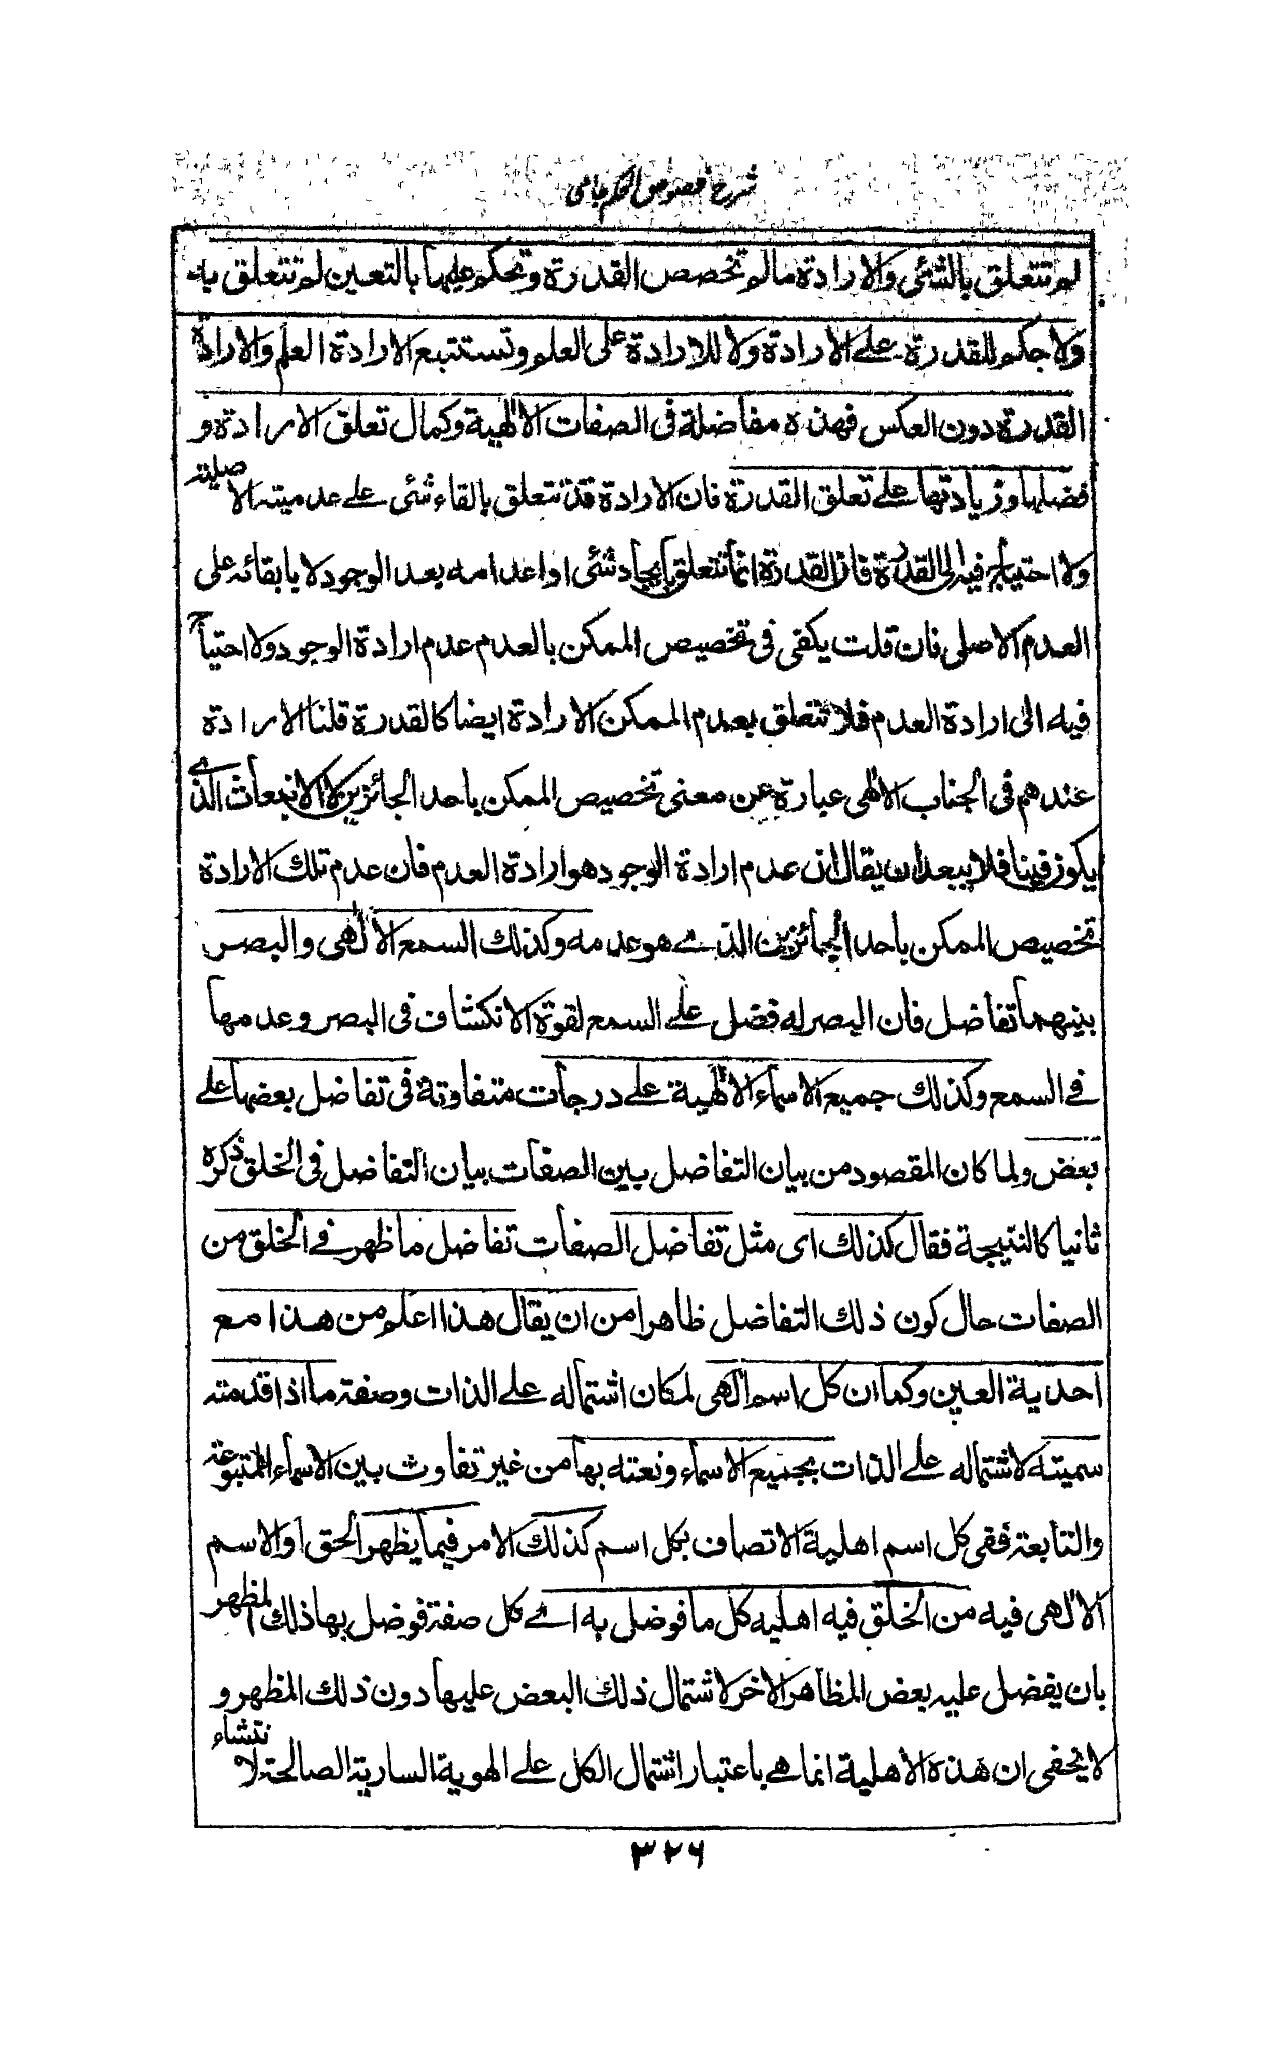 شرح فصوص الحكم جامی
لم تتعلق بالشئی والارادة مالم تخصص القدرة وتحكم عليها بالتعين لم تتعلق به
ولا حكم للقدرة علے الارادة ولا للارادة علی العلم وتستتبع الارادة العلم والارادة
القدرة دون العكس فهذه مفاضلة فی الصفات الالٰهية وكمال تعلق الارادة و
فضلها وزيادتها علے تعلق القدرة فان الارادة قد تتعلق بالقاء شئی علے عدميته الاصلیته
ولا احتياج فيه الی القدرة فان القدرة انما تتعلق بايجاد شئی او اعدامه بعد الوجود لا بابقائه علی
العدم الاصلی فان قلت يكفی فی تخصيص الممكن بالعدم عدم ارادة الوجود ولا احتياج
فيه الی ارادة العدم فلا تتعلق بعدم الممكن الارادة ايضا كالقدرة قلنا الارادة
عندهم فی الجناب الالٰهی عبارة عن معنی تخصيص الممكن باحد الجائزين لا الانبعاث الذے
يكون فينا فلا يبعد ان يقال ان عدم ارادة الوجود هو ارادة العدم فان عدم تلك الارادة
تخصيص الممكن باحد الجائزين الذے هو عدمه وكذلك السمع الالٰهی والبصر
بينهما تفاضل فان البصر له فضل علے السمع لقوة الانكشاف فی البصر وعدمها
فے السمع وكذلك جميع الاسماء الالٰهية علے درجات متفاوتة فی تفاضل بعضها علے
بعض ولما كان المقصود من بيان التفاضل بين الصفات بيان التفاضل فی الخلق ذكره
ثانيا كالنتيجة فقال كذلك ای مثل تفاضل الصفات تفاضل ما ظهر فے الخلق من
الصفات حال كون ذلك التفاضل ظاهرا من ان يقال هذا اعلم من هذا مع
احدية العين وكما ان كل اسم الٰهی لمكان اشتماله علے الذات وصفة ما اذا قدمته
سميته لاشتماله علے الذات بجميع الاسماء ونعته بها من غير تفاوث بين الاسماء المتبوعة
والتابعة ففی كل اسم اهلية الاتصاف بكل اسم كذلك الامر فيما يظهر الحق او الاسم
الالٰهی فيه من الخلق فيه اهليه كل ما فوضل به اے كل صفة فوضل بها ذلك المظهر
بان يفضل عليه بعض المظاهر الاخر لاشتمال ذلك البعض عليها دون ذلك المظهر و
لا يخفی ان هذه الاهلية انما هے باعتبار اشتمال الكل علے الهوية السارية الصالحة لا نتشاء
۳۲۶